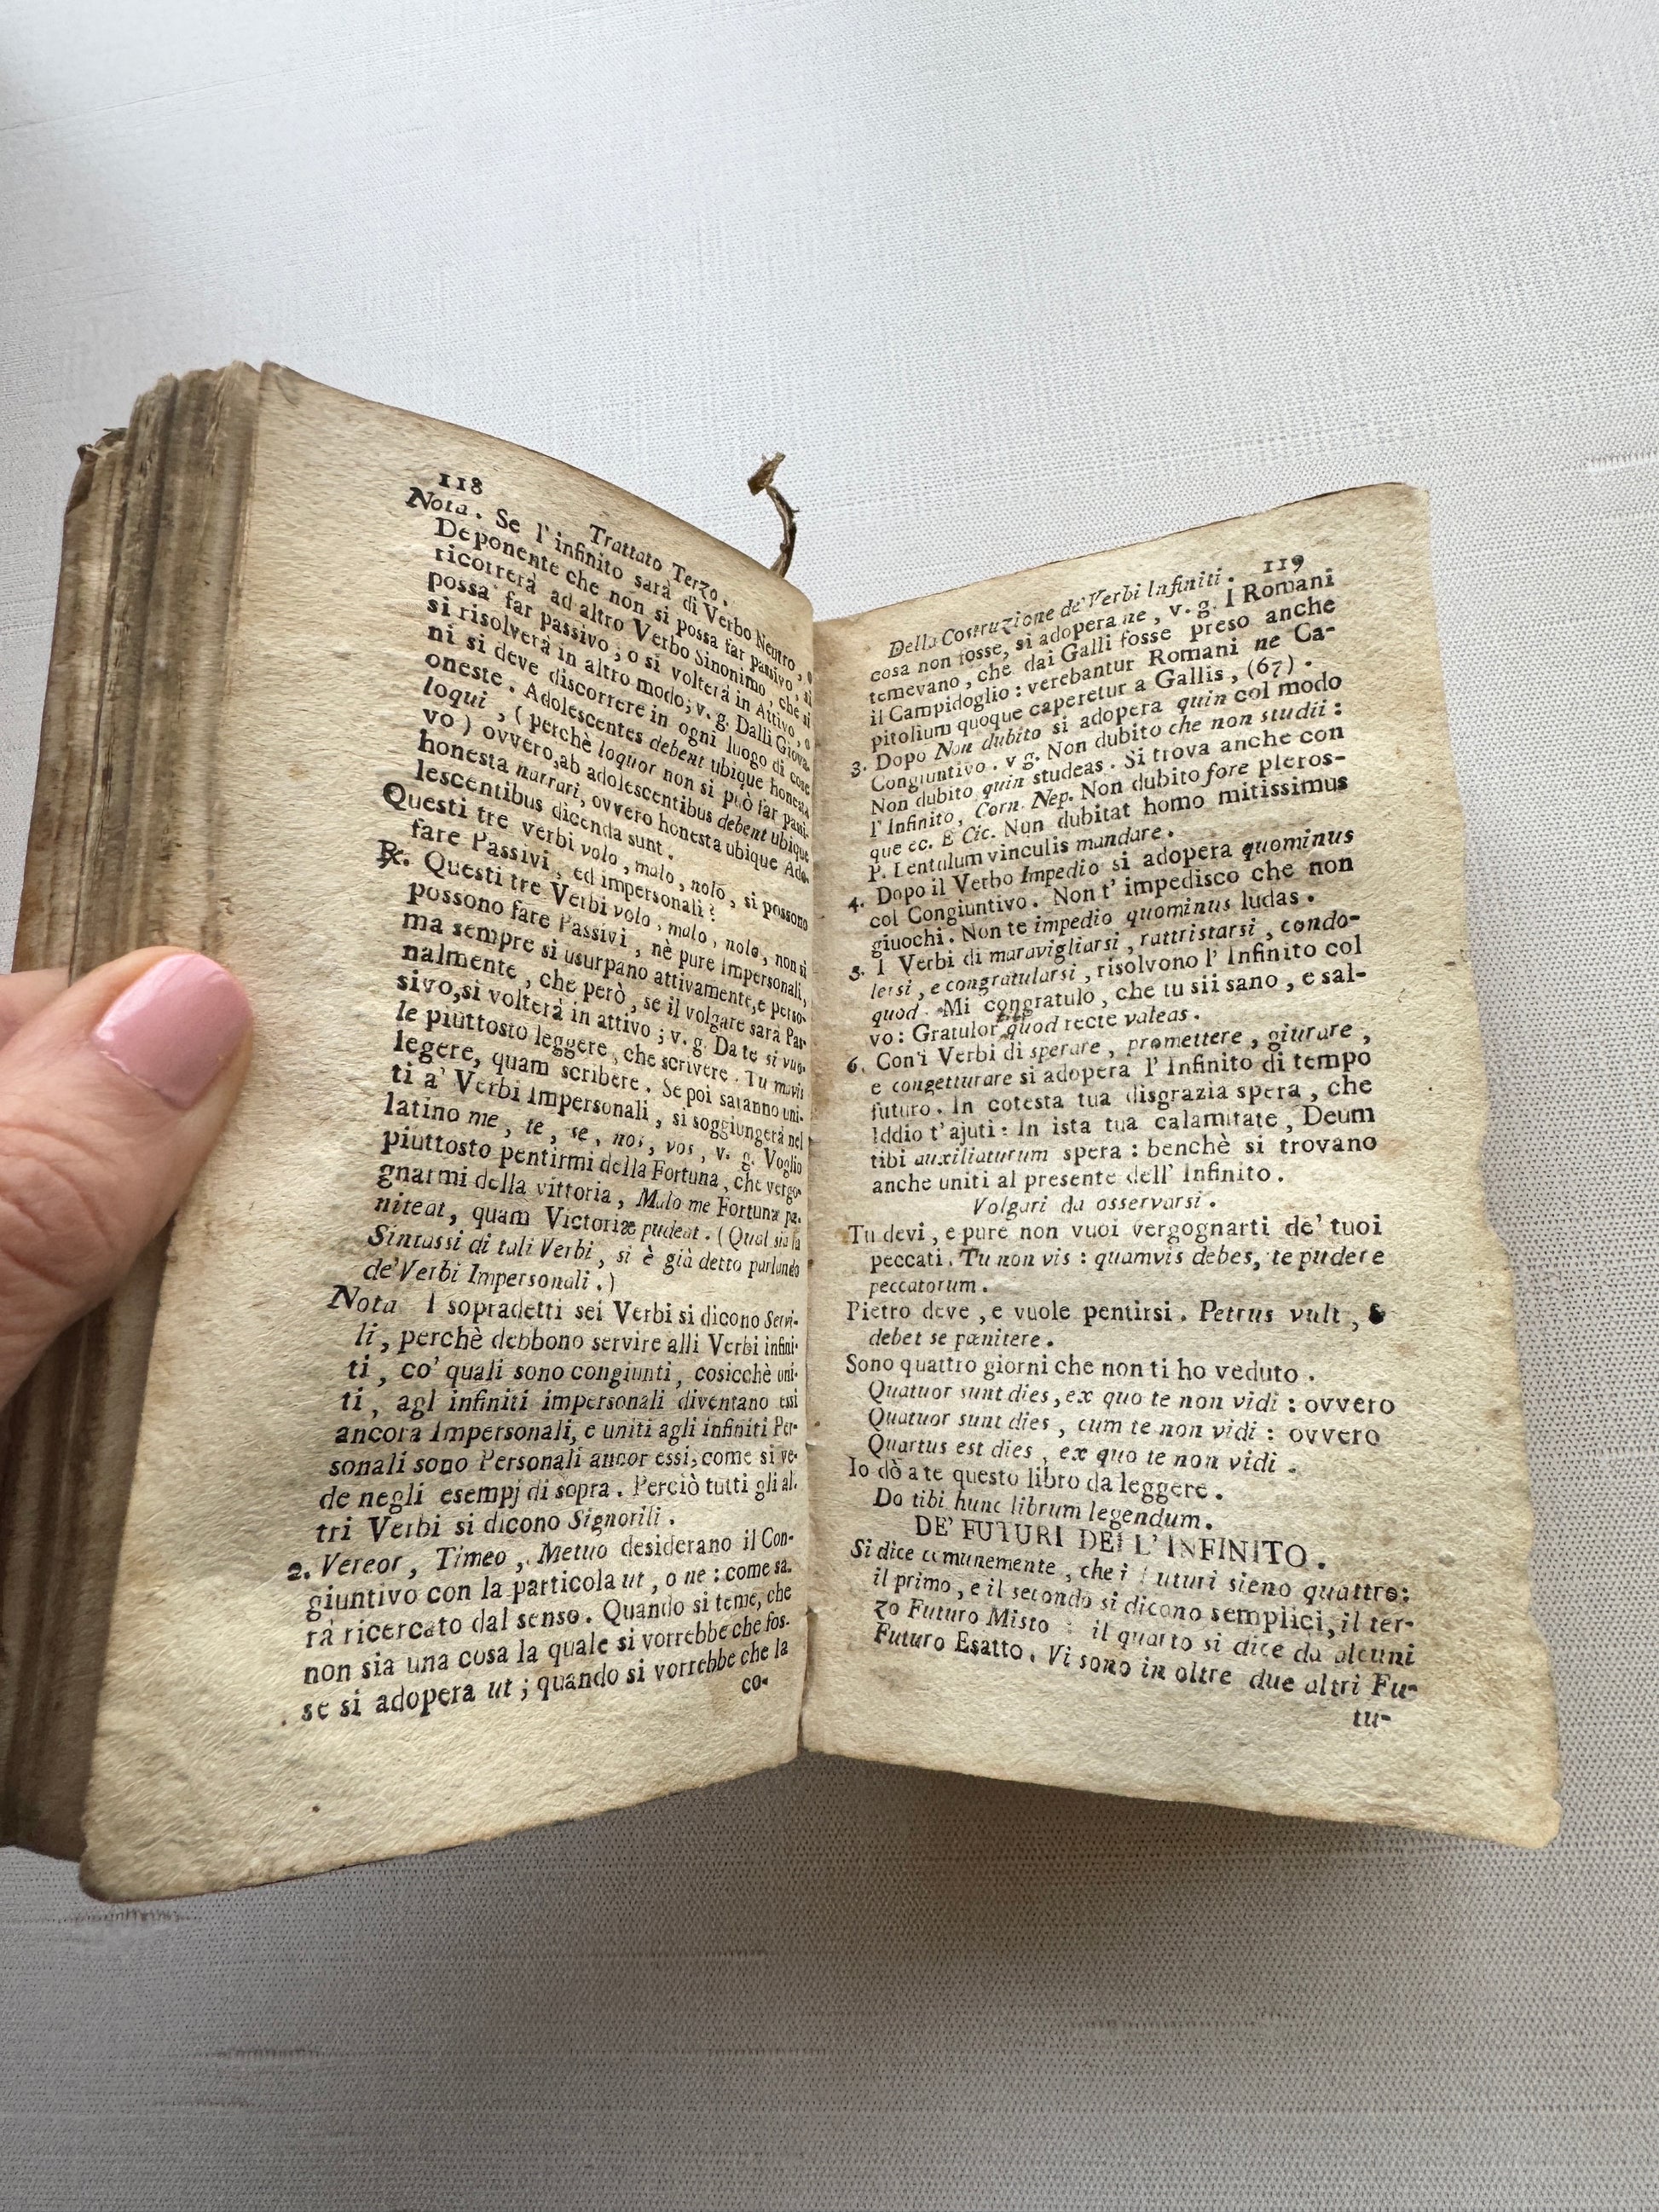 118
Trattato Terzo.
Nota. Se l'infinito sarà di Verbo Neutro, o
Deponente che non si possa far passivo, si
ricorrerà ad altro Verbo Sinonimo, che si
possa far passivo; o si volterà in Attivo, o
si risolverà in altro modo; v. g. Dalli Giova-
ni si deve discorrere in ogni luogo di cose
oneste. Adolescentes debent ubique honesta
loqui, (perchè loquor non si può far passi-
vo) ovvero, ab adolescentibus debent ubique
honesta narrari, ovvero honesta ubique Ado-
lescentibus dicenda sunt.
Questi tre verbi volo, malo, nolo, si possono
fare Passivi, ed impersonali?
R. Questi tre Verbi volo, malo, nolo, non si
possono fare Passivi, nè pure Impersonali,
ma sempre si usurpano attivamente, e perso-
nalmente, che però, se il volgare sarà Pas-
sivo, si volterà in attivo; v. g. Da te si vuo-
le piuttosto leggere, che scrivere. Tu mavis
legere, quam scribere. Se poi saranno uni-
ti a' Verbi Impersonali, si soggiungerà nel
latino me, te, se, nos, vos, v. g. Voglio
piuttosto pentirmi della Fortuna, che vergo-
gnarmi della vittoria, Malo me Fortunæ pæ-
niteat, quam Victoriæ pudeat. (Qual sia la
Sintassi di tali Verbi, si è già detto parlando
de' Verbi Impersonali.)
Nota I sopradetti sei Verbi si dicono Servi-
li, perchè debbono servire alli Verbi infini-
ti, co' quali sono congiunti, cosicchè uni-
ti, agl infiniti impersonali diventano essi
ancora Impersonali, e uniti agli infiniti Per-
sonali sono Personali ancor essi, come si ve-
de negli esempj di sopra. Perciò tutti gli al-
tri Verbi si dicono Signorili.
2. Vereor, Timeo, Metuo desiderano il Con-
giuntivo con la particola ut, o ne: come sa-
rà ricercato dal senso. Quando si teme, che
non sia una cosa la quale si vorrebbe che fos-
se si adopera ut; quando si vorrebbe che la
co-
Della Costruzione de' Verbi Infiniti. 119
cosa non fosse, si adopera ne, v. g. I Romani
temevano, che dai Galli fosse preso anche
il Campidoglio: verebantur Romani ne Ca-
pitolium quoque caperetur a Gallis, (67).
3. Dopo Non dubito si adopera quin col modo
Congiuntivo. v g. Non dubito che non studii:
Non dubito quin studeas. Si trova anche con
l'Infinito, Corn. Nep. Non dubito fore pleros-
que ec. E Cic. Nun dubitat homo mitissimus
P. Lentulum vinculis mandare.
4. Dopo il Verbo Impedio si adopera quominus
col Congiuntivo. Non t' impedisco che non
giuochi. Non te impedio quominus ludas.
5. I Verbi di maravigliarsi, rattristarsi, condo-
lersi, e congratularsi, risolvono l' Infinito col
quod. Mi congratulo, che tu sii sano, e sal-
vo: Gratulor quod recte valeas.
6. Con'i Verbi di sperare, promettere, giurare,
e congetturare si adopera l' Infinito di tempo
futuro. In cotesta tua disgrazia spera, che
Iddio t'ajuti: In ista tua calamitate, Deum
tibi auxiliaturum spera: benchè si trovano
anche uniti al presente dell' Infinito.
Volgari da osservarsi.
Tu devi, e pure non vuoi vergognarti de' tuoi
peccati. Tu non vis: quamvis debes, te pudere
peccatorum.
Pietro deve, e vuole pentirsi. Petrus vult, &
debet se pænitere.
Sono quattro giorni che non ti ho veduto.
Quatuor sunt dies, ex quo te non vidi: ovvero
Quatuor sunt dies, cum te non vidi: ovvero
Quartus est dies, ex quo te non vidi.
Io dò a te questo libro da leggere.
Do tibi hunc librum legendum.
DE' FUTURI DELL' INFINITO.
Si dice comunemente, che i Futuri sieno quattro:
il primo, e il secondo si dicono semplici, il ter-
zo Futuro Misto: il quarto si dice da alcuni
Futuro Esatto. Vi sono in oltre due altri Fu-
tu-